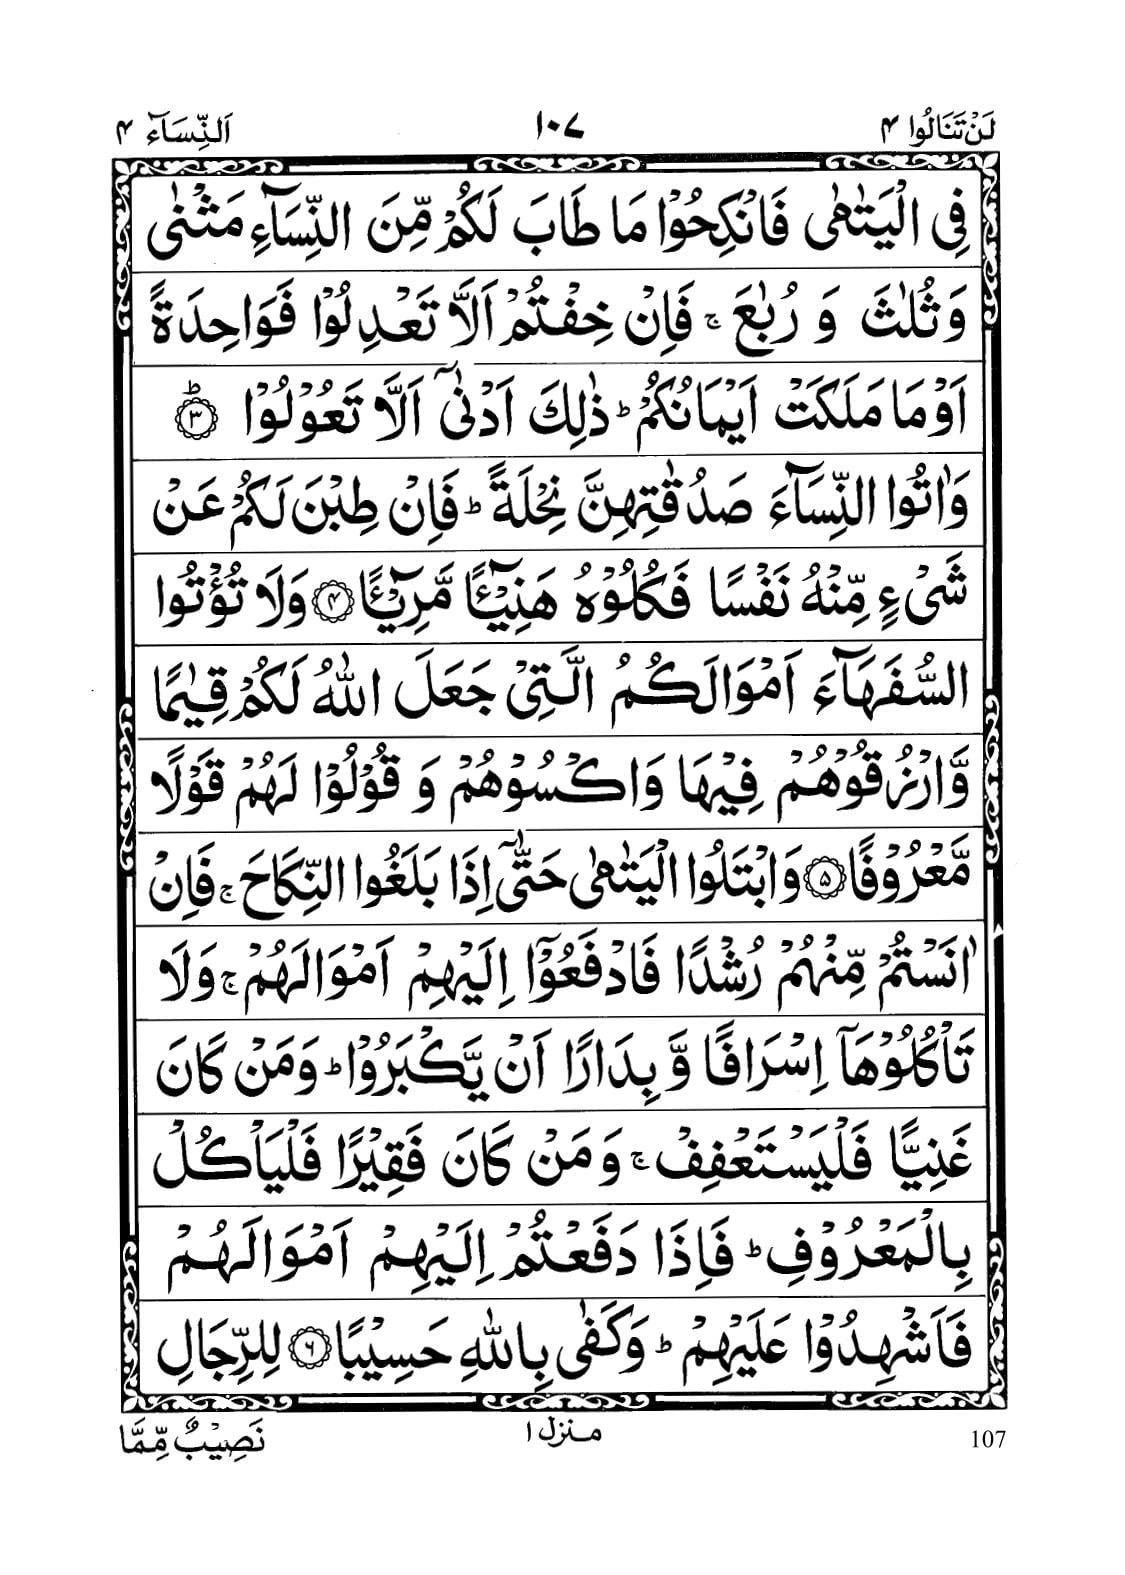 لَنْ تَنَالُوا ۴
۱۰۷
اَلنِّسَآء ۴
فِی الْیَتٰمٰی فَانْكِحُوْا مَا طَابَ لَكُمْ مِّنَ النِّسَآءِ مَثْنٰی
وَ ثُلٰثَ وَ رُبٰعَ ۚ فَاِنْ خِفْتُمْ اَلَّا تَعْدِلُوْا فَوَاحِدَةً
اَوْ مَا مَلَكَتْ اَیْمَانُكُمْ ؕ ذٰلِكَ اَدْنٰۤی اَلَّا تَعُوْلُوْا ؕ ﴿۳﴾
وَاٰتُوا النِّسَآءَ صَدُقٰتِهِنَّ نِحْلَةً ؕ فَاِنْ طِبْنَ لَكُمْ عَنْ
شَیْءٍ مِّنْهُ نَفْسًا فَكُلُوْهُ هَنِیْٓـًٔا مَّرِیْٓـًٔا ﴿۴﴾ وَلَا تُؤْتُوا
السُّفَهَآءَ اَمْوَالَكُمُ الَّتِیْ جَعَلَ اللّٰهُ لَكُمْ قِیٰمًا
وَّارْزُقُوْهُمْ فِیْهَا وَاكْسُوْهُمْ وَ قُوْلُوْا لَهُمْ قَوْلًا
مَّعْرُوْفًا ﴿۵﴾ وَابْتَلُوا الْیَتٰمٰی حَتّٰۤی اِذَا بَلَغُوا النِّكَاحَ ۚ فَاِنْ
اٰنَسْتُمْ مِّنْهُمْ رُشْدًا فَادْفَعُوْۤا اِلَیْهِمْ اَمْوَالَهُمْ ۚ وَلَا
تَاْكُلُوْهَاۤ اِسْرَافًا وَّ بِدَارًا اَنْ یَّكْبَرُوْا ؕ وَمَنْ كَانَ
غَنِیًّا فَلْیَسْتَعْفِفْ ۚ وَمَنْ كَانَ فَقِیْرًا فَلْیَاْكُلْ
بِالْمَعْرُوْفِ ؕ فَاِذَا دَفَعْتُمْ اِلَیْهِمْ اَمْوَالَهُمْ
فَاَشْهِدُوْا عَلَیْهِمْ ؕ وَكَفٰی بِاللّٰهِ حَسِیْبًا ﴿۶﴾ لِلرِّجَالِ
نَصِیْبٌ مِّمَّا
منزل ۱
107